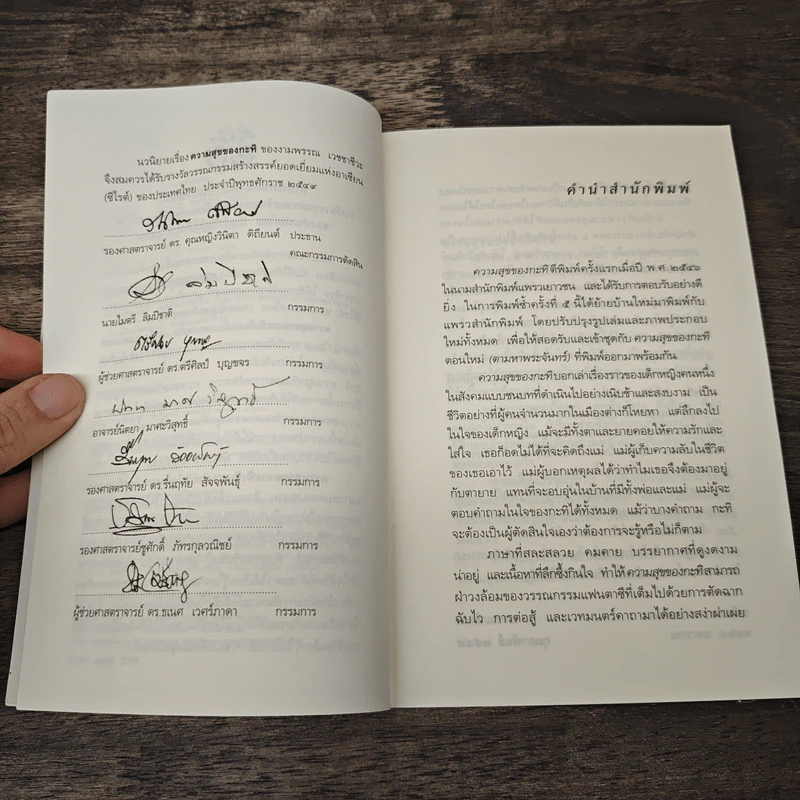 นวนิยายเรื่อง ความสุขของกะทิ ของงามพรรณ เวชชาชีวะ
จึงสมควรได้รับรางวัลวรรณกรรมสร้างสรรค์ยอดเยี่ยมแห่งอาเซียน
(ซีไรต์) ของประเทศไทย ประจำปีพุทธศักราช ๒๕๔๙
รองศาสตราจารย์ ดร. คุณหญิงวินิตา ดิถียนต์ ประธาน
คณะกรรมการตัดสิน
นายไมตรี ลิมปิชาติ กรรมการ
ผู้ช่วยศาสตราจารย์ ดร.ตรีศิลป์ บุญขจร กรรมการ
อาจารย์นิตยา มาศะวิสุทธิ์ กรรมการ
รองศาสตราจารย์ ดร.รื่นฤทัย สัจจพันธุ์ กรรมการ
รองศาสตราจารย์ชูศักดิ์ ภัทรกุลวณิชย์ กรรมการ
ผู้ช่วยศาสตราจารย์ ดร.ธเนศ เวศร์ภาดา กรรมการ
คำนำสำนักพิมพ์
ความสุขของกะทิ ตีพิมพ์ครั้งแรกเมื่อปี พ.ศ. ๒๕๔๖
ในนามสำนักพิมพ์แพรวเยาวชน และได้รับการตอบรับอย่างดี
ยิ่ง ในการพิมพ์ซ้ำครั้งที่ ๕ นี้ได้ย้ายบ้านใหม่มาพิมพ์กับ
แพรวสำนักพิมพ์ โดยปรับปรุงรูปเล่มและภาพประกอบ
ใหม่ทั้งหมด เพื่อให้สอดรับและเข้าชุดกับ ความสุขของกะทิ
ตอนใหม่ (ตามหาพระจันทร์) ที่พิมพ์ออกมาพร้อมกัน
ความสุขของกะทิ บอกเล่าเรื่องราวของเด็กหญิงคนหนึ่ง
ในสังคมแบบชนบทที่ดำเนินไปอย่างเนิบช้าและสงบงาม เป็น
ชีวิตอย่างที่ผู้คนจำนวนมากในเมืองต่างก็โหยหา แต่ลึกลงไป
ในใจของเด็กหญิง แม้จะมีทั้งตาและยายคอยให้ความรักและ
ใส่ใจ เธอก็อดไม่ได้ที่จะคิดถึงแม่ แม่ผู้เก็บความลับในชีวิต
ของเธอเอาไว้ แม่ผู้บอกเหตุผลได้ว่าทำไมเธอจึงต้องมาอยู่
กับตายาย แทนที่จะอบอุ่นในบ้านที่มีทั้งพ่อและแม่ แม่ผู้จะ
ตอบคำถามในใจของกะทิได้ทั้งหมด แม้ว่าบางคำถาม กะทิ
จะต้องเป็นผู้ตัดสินใจเองว่าต้องการจะรู้หรือไม่ก็ตาม
ภาษาที่สละสลวย คมคาย บรรยากาศที่ดูงดงาม
น่าอยู่ และเนื้อหาที่ลึกซึ้งกินใจ ทำให้ ความสุขของกะทิ สามารถ
ฝ่าวงล้อมของวรรณกรรมแฟนตาซีที่เต็มไปด้วยการตัดฉาก
ฉับไว การต่อสู้ และเวทมนตร์คาถามาได้อย่างสง่าผ่าเผย